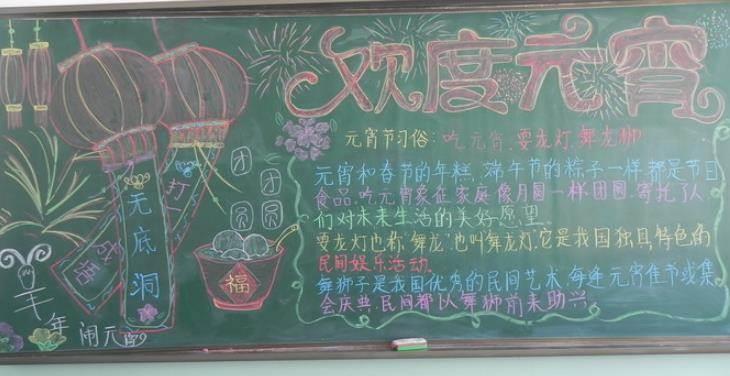 欢度元宵
元宵节习俗：吃元宵、耍龙灯、舞龙狮
元宵和春节的年糕、端午节的粽子一样都是节日
食品。吃元宵象征家庭像月圆一样团圆，寄托了人
们对未来生活的美好愿望。
耍龙灯也称“舞龙”，也叫舞龙灯。它是我国独具特色的
民间娱乐活动。
舞狮子是我国优秀的民间艺术，每逢元宵佳节或集
会庆典，民间都以舞狮前来助兴。
团团
圆圆
打一
成语
无底洞
福
羊年
闹元宵